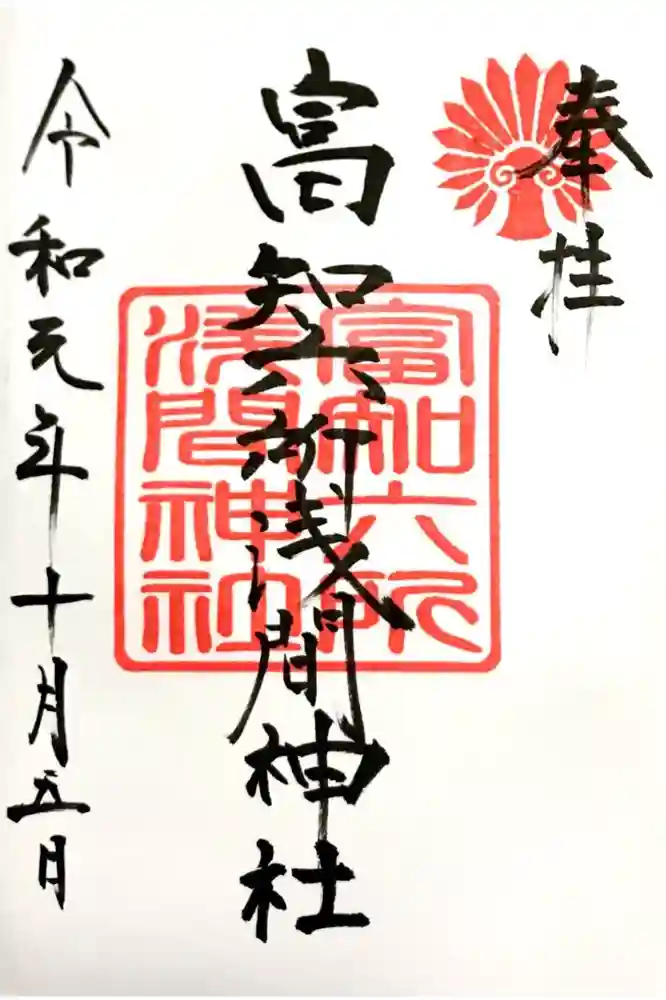 奉拝
富知六所浅間神社
富知六所
浅間神社
令和元年十月五日